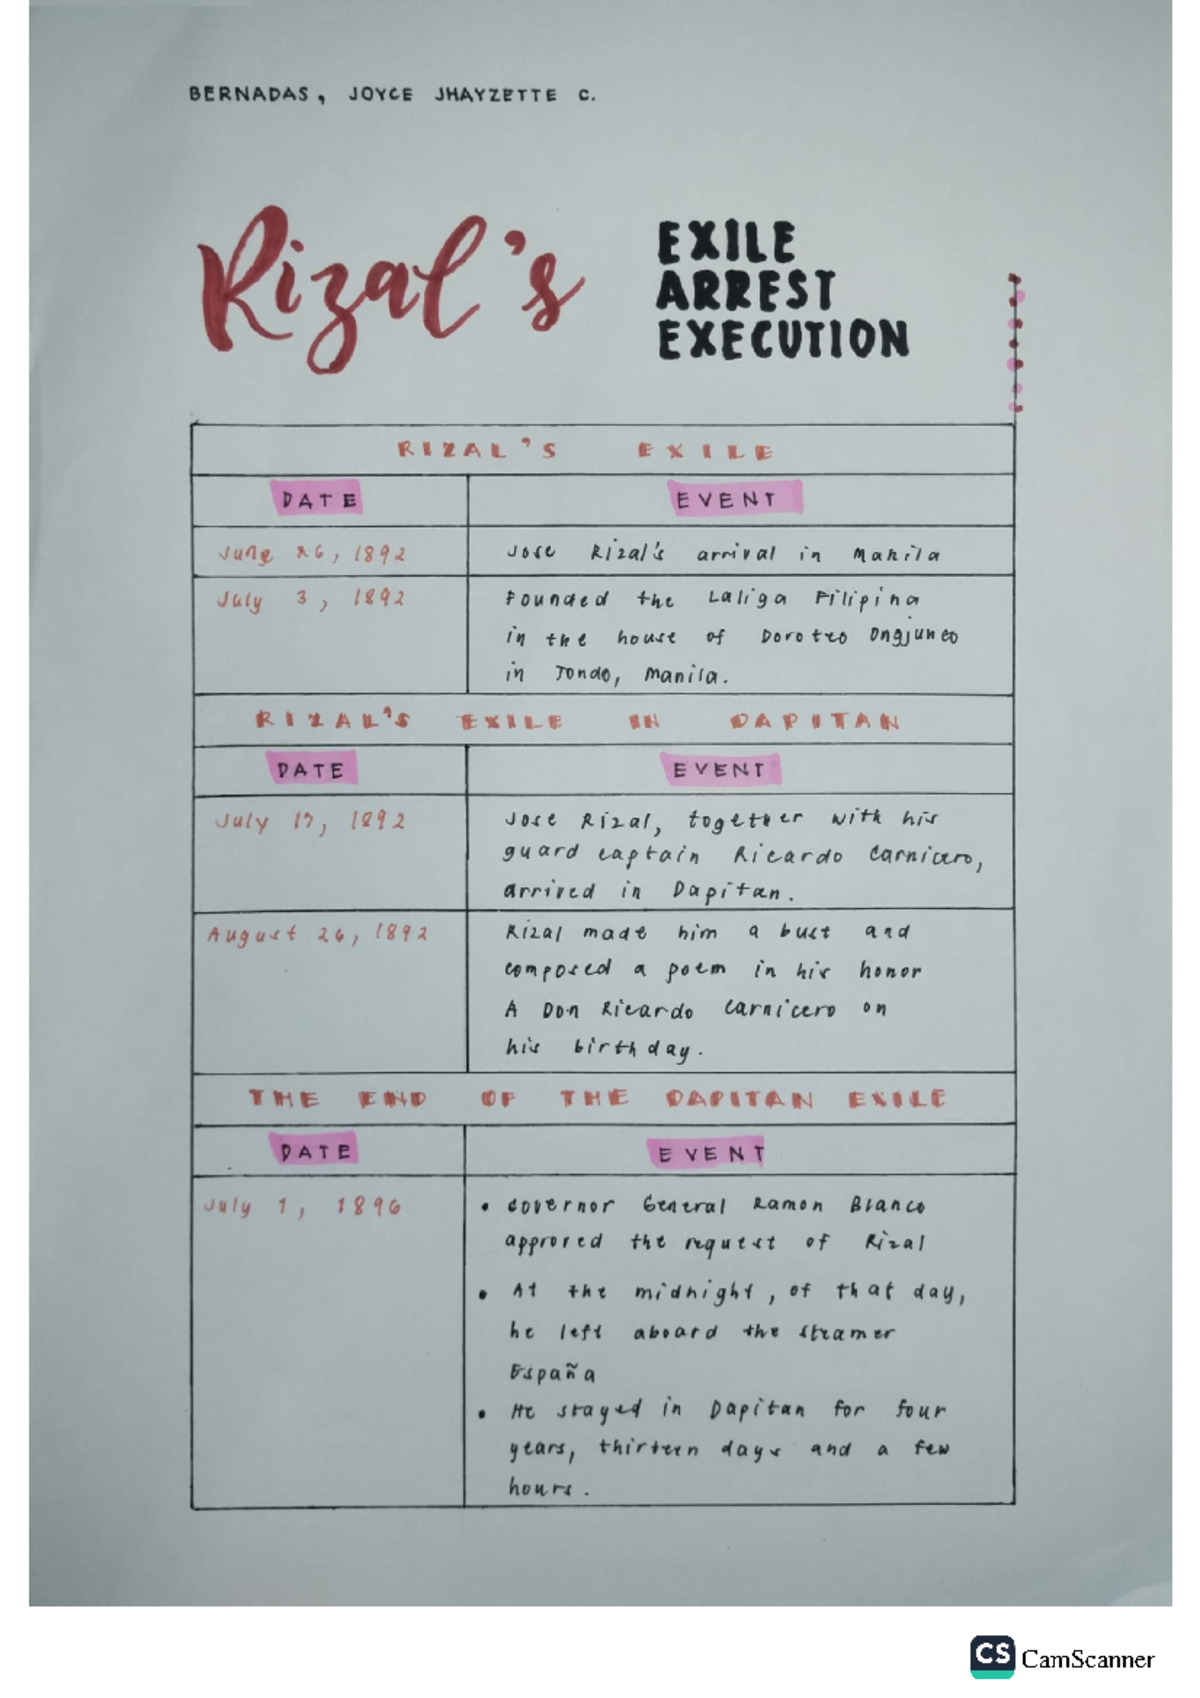 BERNADAS, JOYCE JHAYZETTE C.
Rizal's
EXILE
ARREST
EXECUTION
RIZAL'S EXILE
DATE EVENT
June 26, 1892 Jose Rizal's arrival in Manila
July 3, 1892 Founded the Laliga Filipina
in the house of Doroteo Ongjunco
in Tondo, Manila.
RIZAL'S EXILE IN DAPITAN
DATE EVENT
July 17, 1892 Jose Rizal, together with his
guard captain Ricardo Carnicero,
arrived in Dapitan.
August 26, 1892 Rizal made him a bust and
composed a poem in his honor
A Don Ricardo Carnicero on
his birthday.
THE END OF THE DAPITAN EXILE
DATE EVENT
July 1, 1896 • Governor General Ramon Blanco
approved the request of Rizal
• At the midnight, of that day,
he left aboard the steamer
España
• He stayed in Dapitan for four
years, thirteen days and a few
hours.
CS CamScanner